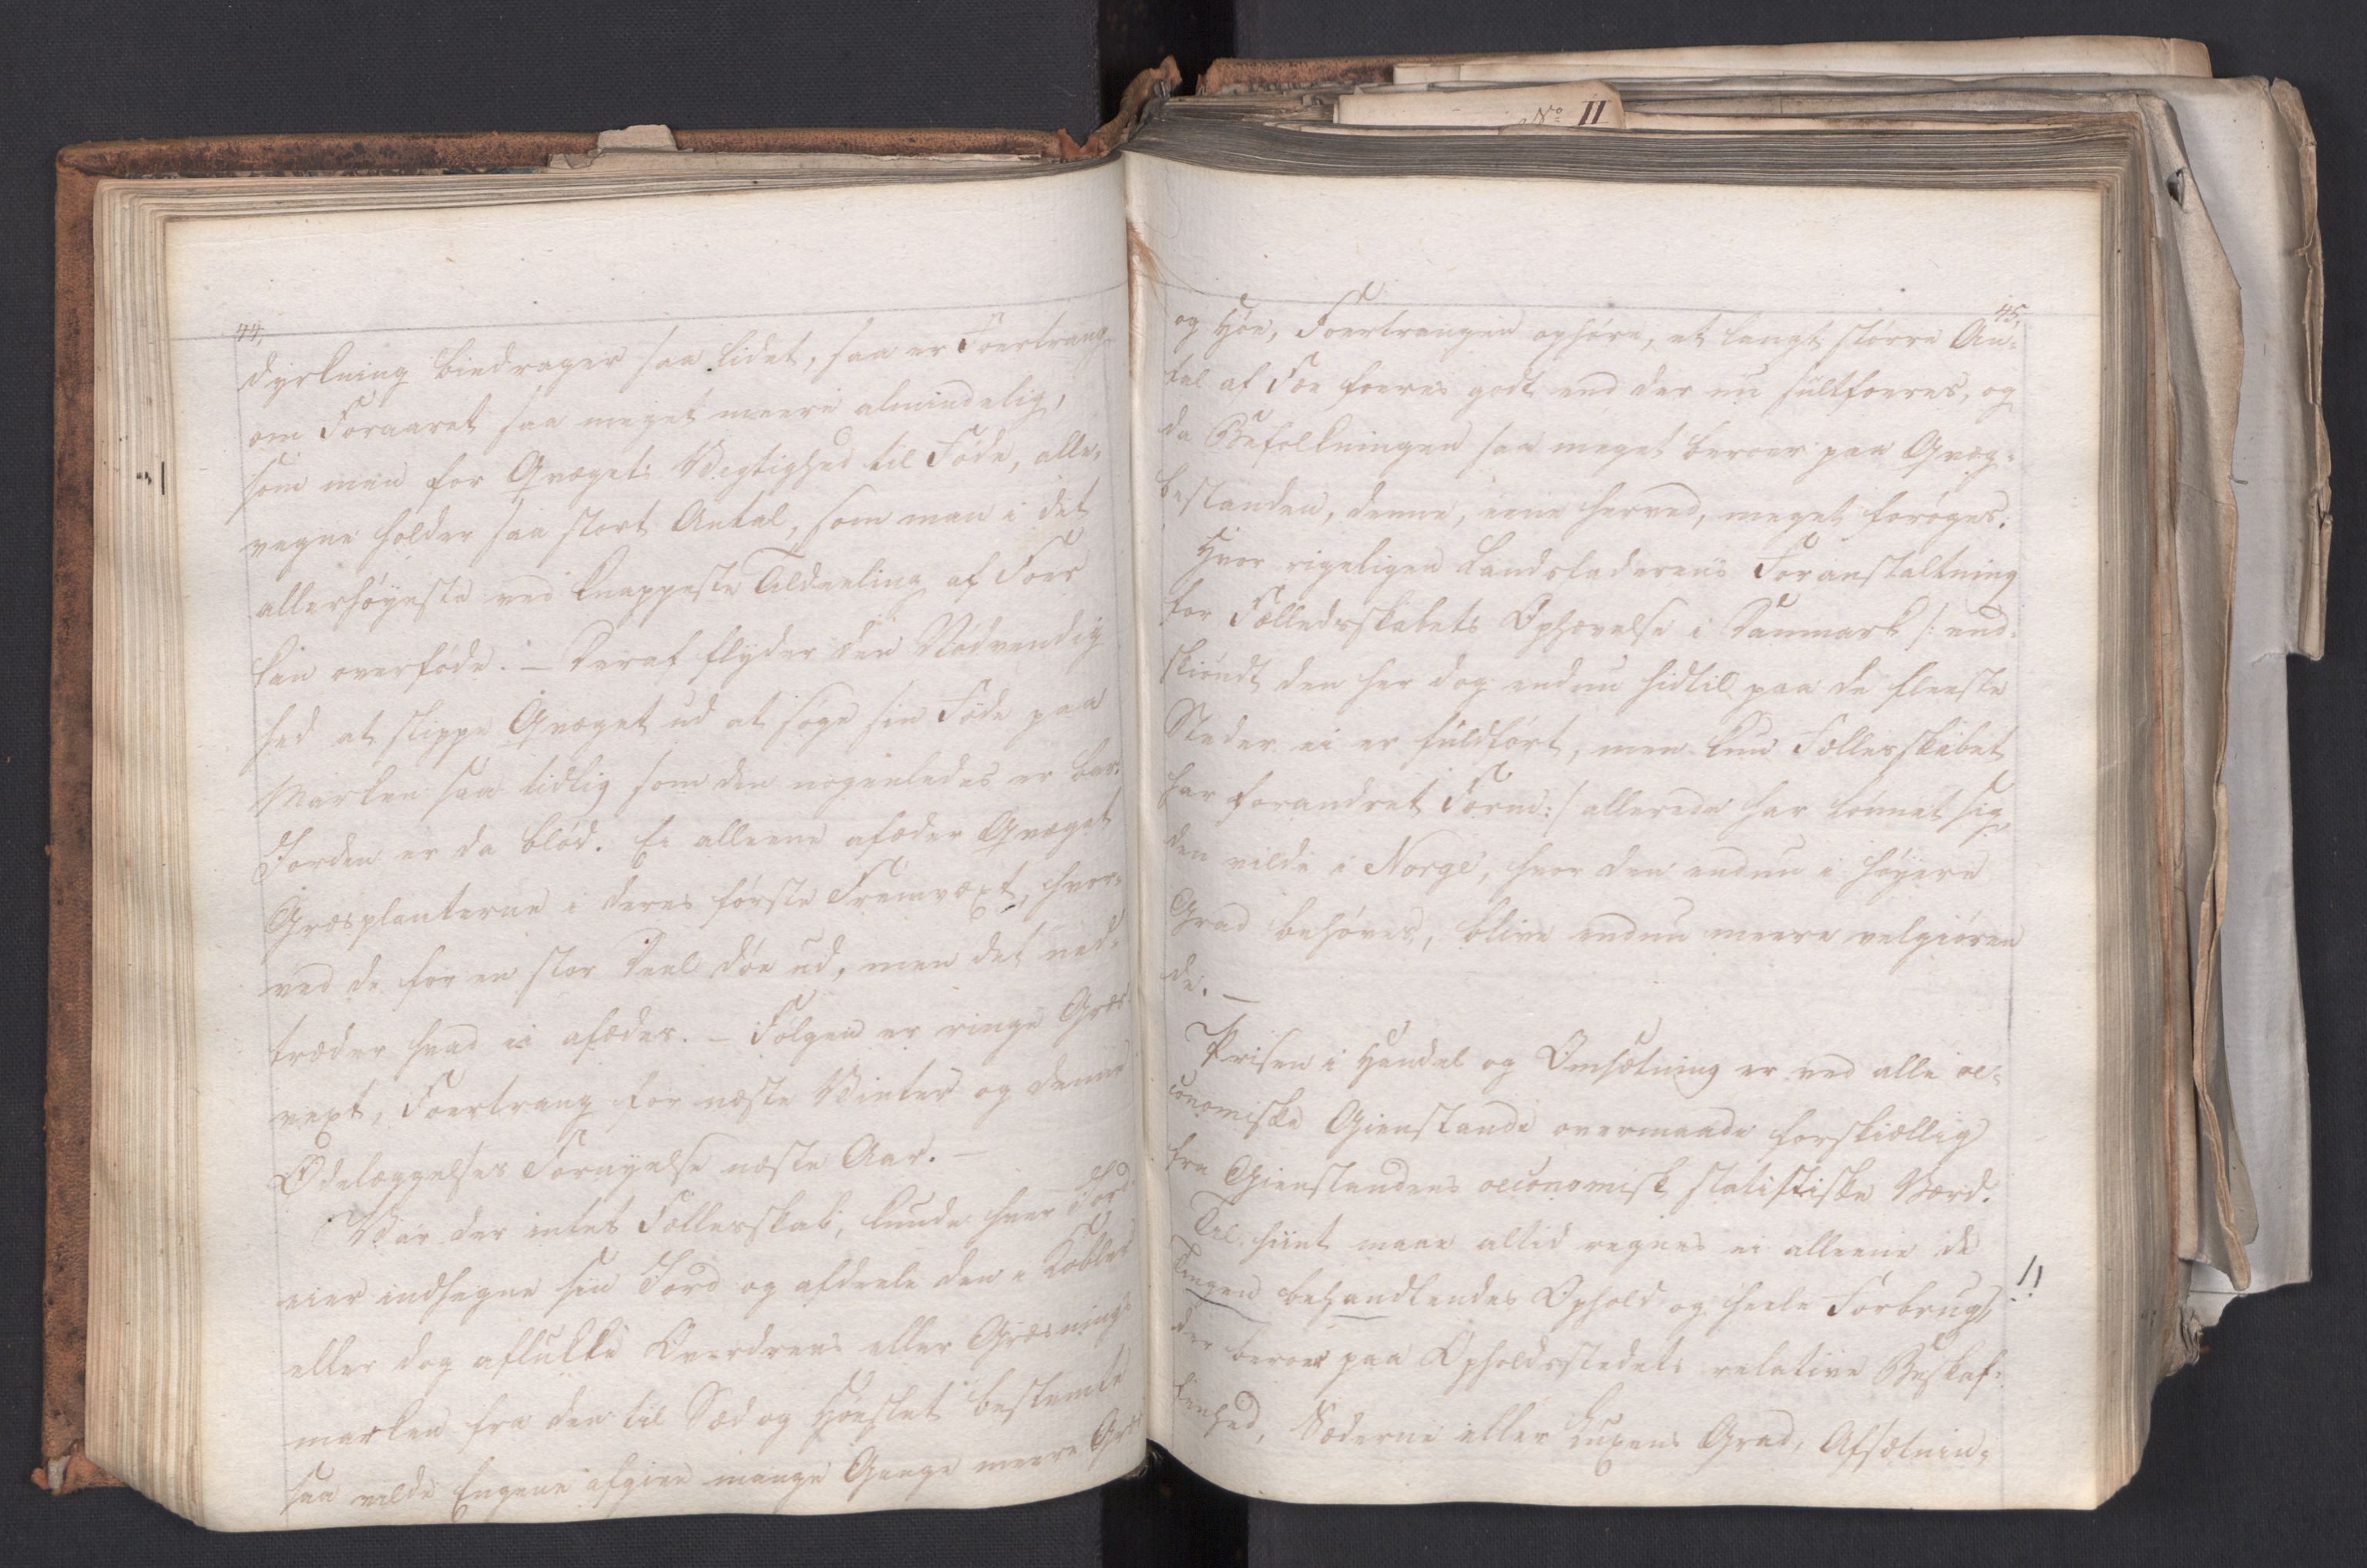 No II
44.
dyrkning biedrager saa lidet, saa er Foertrang
om Foraaret saa meget meere almindelig,
som man for Qvægets Vigtighed til Føde, alle-
vegne holder saa stort Antal, som man i det
allerhøyeste ved knappeste Tildeeling af Foer
kan overføde. — Deraf flyder den Nødvendig
hed at slippe Qvæget ud at søge sin Føde paa
Marken saa tidlig som den nogenledes er bar.
Jorden er da blød. Ei alleene afæder Qvæget
Græsplanterne i deres første Fremvæxt, hvor-
ved de for en stor Deel døe ud, men det ned-
træder hvad ei afædes. — Følgen er ringe Græs
vext, Foertrang for næste Vinter og denne
Ødelæggelses Fornyelse næste Aar. —
Var der intet Fællesskab, kunde hver Jord
eier indhegne sin Jord og afdeele den i Kobler
eller dog aflukke Overdrevs eller Græsnings-
marken fra den til Sæd og Høeslet bestemte
saa vilde Engene afgive mange Gange meere Græs
45.
og Høe, Foertrangen ophøre, et langt større An-
tal af Fæe foeres godt end der nu sultfoeres, og
da Befolkningen saa meget beroer paa Qvæg-
bestanden, denne, eene herved, meget forøges.
Hvor rigeligen Landsfaderens Foranstaltning
for Fælledsskabets Ophævelse i Danmark /: end-
skiøndt den her dog endnu hidtil paa de fleeste
Steder ei er fuldført, men kun Fællesskabet
har forandret Form :/ allerede har lønnet sig
den vilde i Norge, hvor den endnu i høyere
Grad behøves, blive endnu meere velgiøren
de. —
Prisen i Handel og Omsætning er ved alle oe-
conomiske Gienstande overmaade forskiællig
fra Gienstandens oeconomisk statistiske Værd.
Til hiint maae altid regnes ei alleene de
Tingen behandlendes Ophold og heele Forbrug, !!
der beroer paa Opholdsstedets relative Beskaf-
fenhed, Sæderne eller Luxens Grad, Afsætnin-